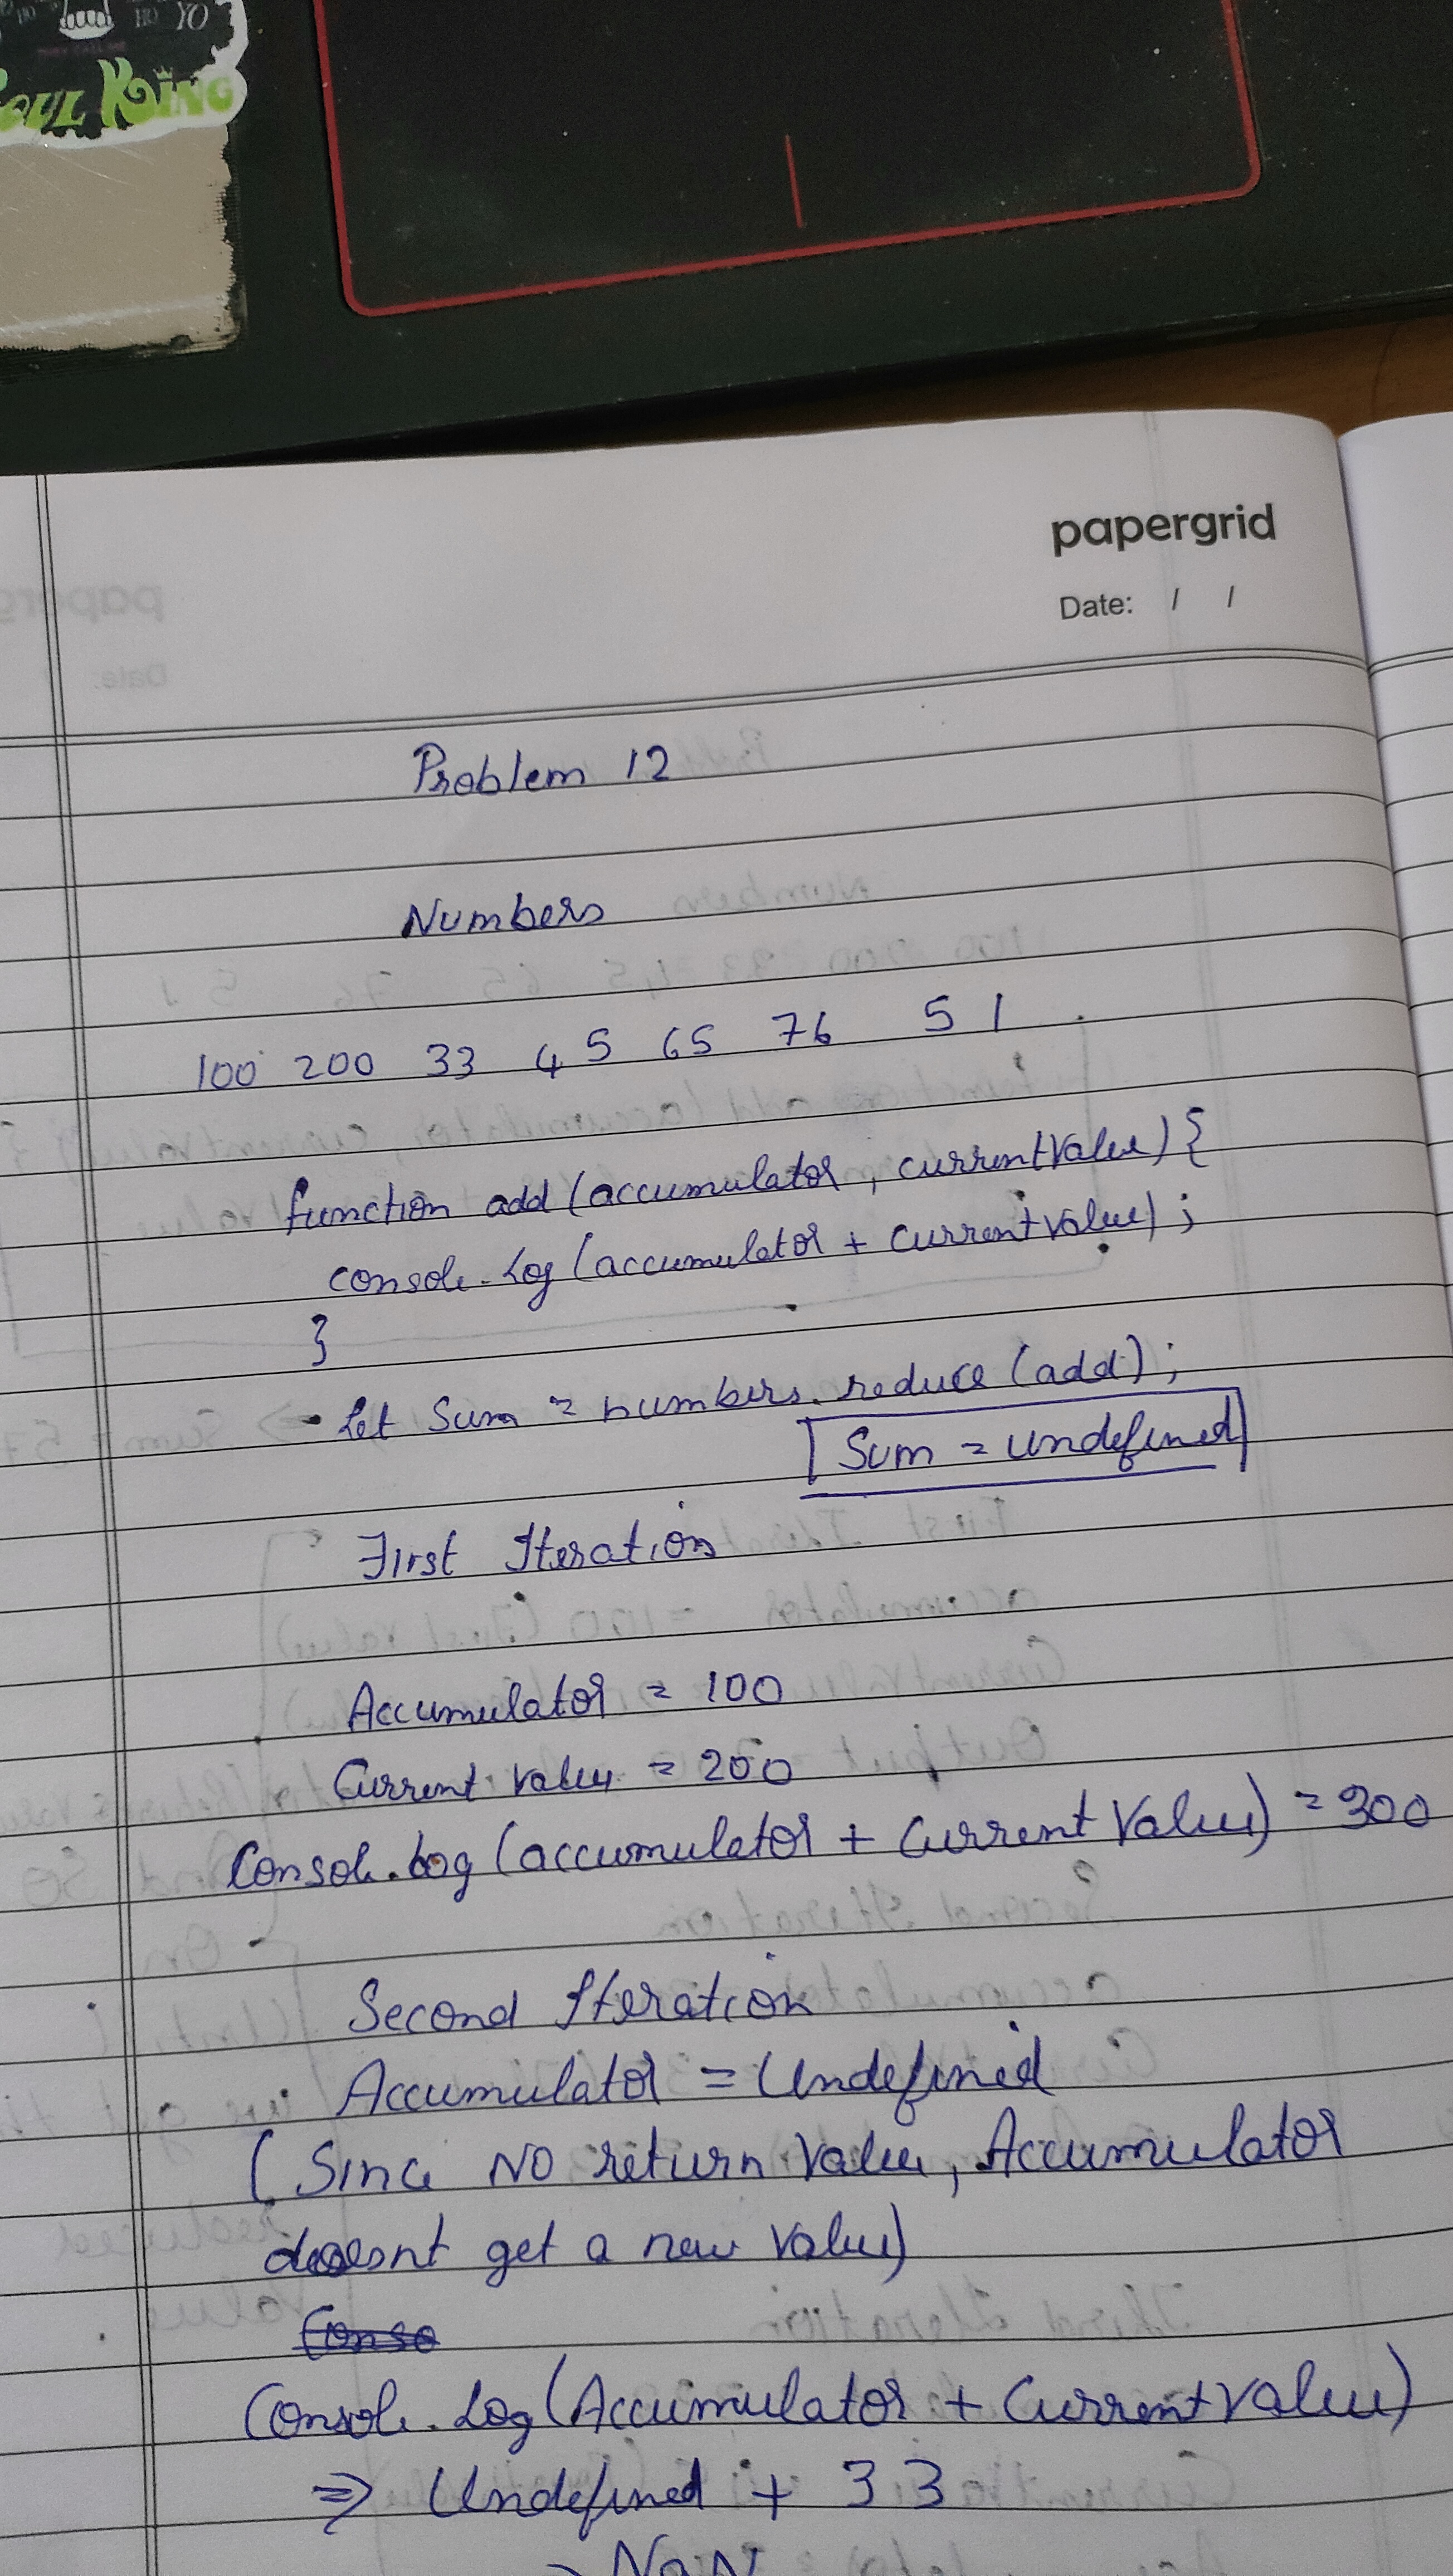 HO YO
SOUL KING
papergrid
Date: / /
Problem 12
Numbers
100 200 33 45 65 76 51
function add (accumulator, currentValue) {
console.log (accumulator + currentValue);
}
let sum = numbers.reduce (add);
Sum = undefined
First Iteration
Accumulator = 100
Current value = 200
Console.log (accumulator + Current Value) = 300
Second Iteration
Accumulator = Undefined
(Since NO return value, Accumulator
doesnt get a new value)
Conso
Console.log (Accumulator + CurrentValue)
⇒ Undefined + 33
⇒ NaN